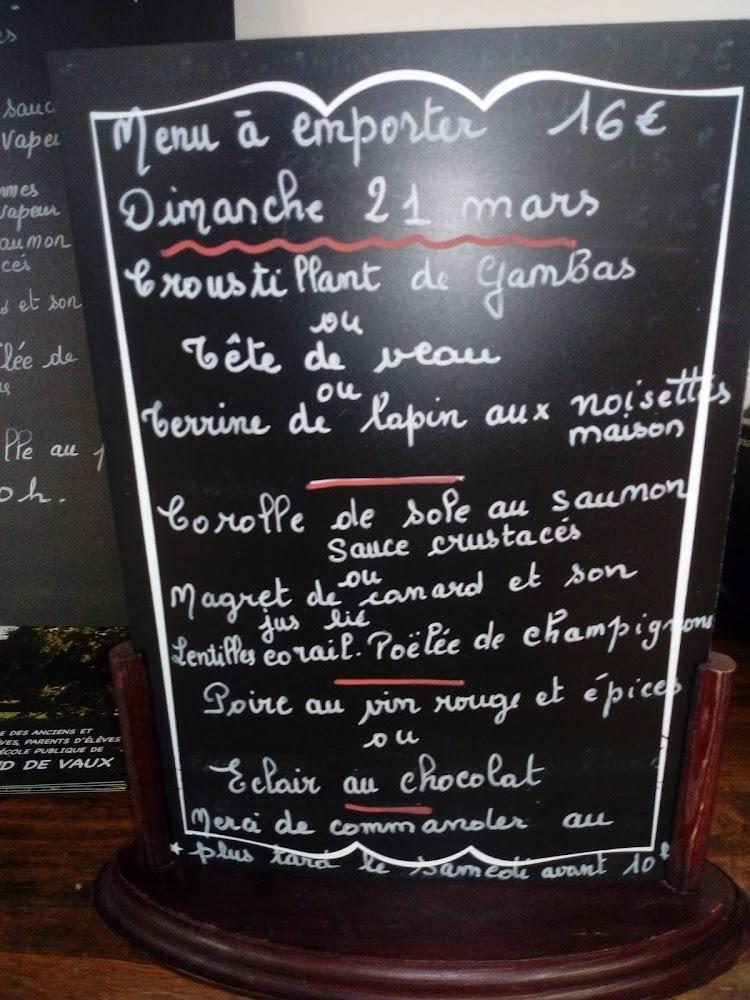 Menu à emporter 16€
Dimanche 21 mars
Croustillant de Gambas
ou
Tête de veau
ou
Terrine de lapin aux noisettes
maison
Corolle de sole au saumon
Sauce crustacés
ou
Magret de canard et son
jus lié
Lentilles corail. Poëlée de champignons
Poire au vin rouge et épices
ou
Eclair au chocolat
Merci de commander au
* plus tard le samedi avant 10h
sauc
vapeu
mmes
vapeur
aumon
cés
et son
lée de
lle au 1
0h.
E DES ANCIENS ET
VES, PARENTS D'ÉLÈVES
ÉCOLE PUBLIQUE DE
ND DE VAUX